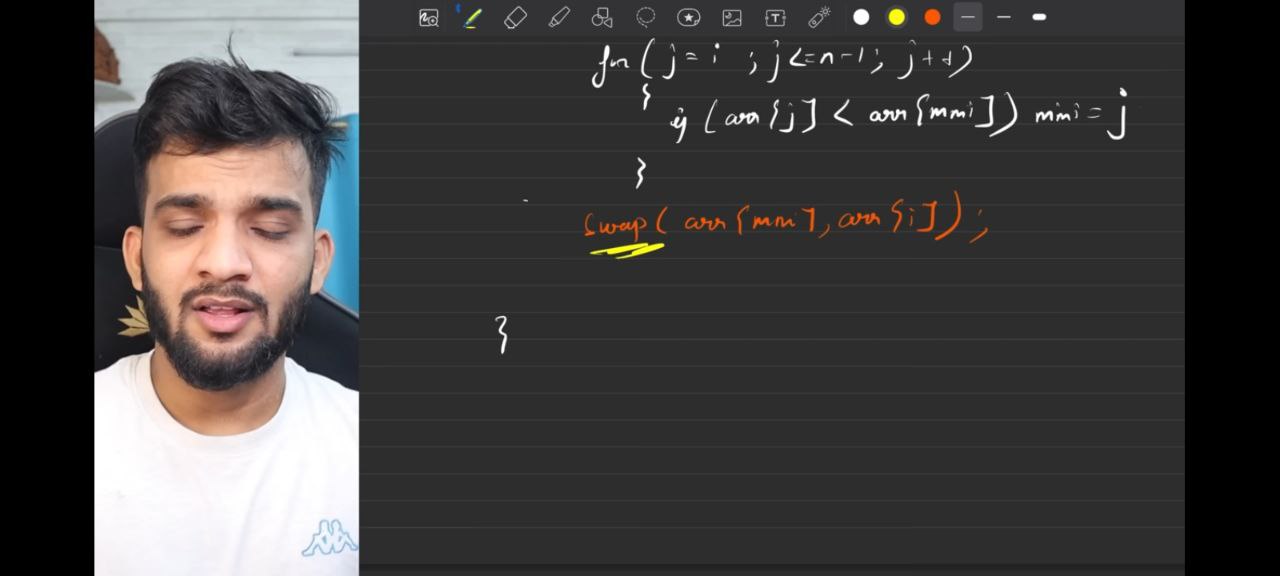 for ( j = i ; j <= n-1; j++)
{
if (arr[j] < arr[mini]) mini = j
}
swap( arr[mini], arr[i]);
}